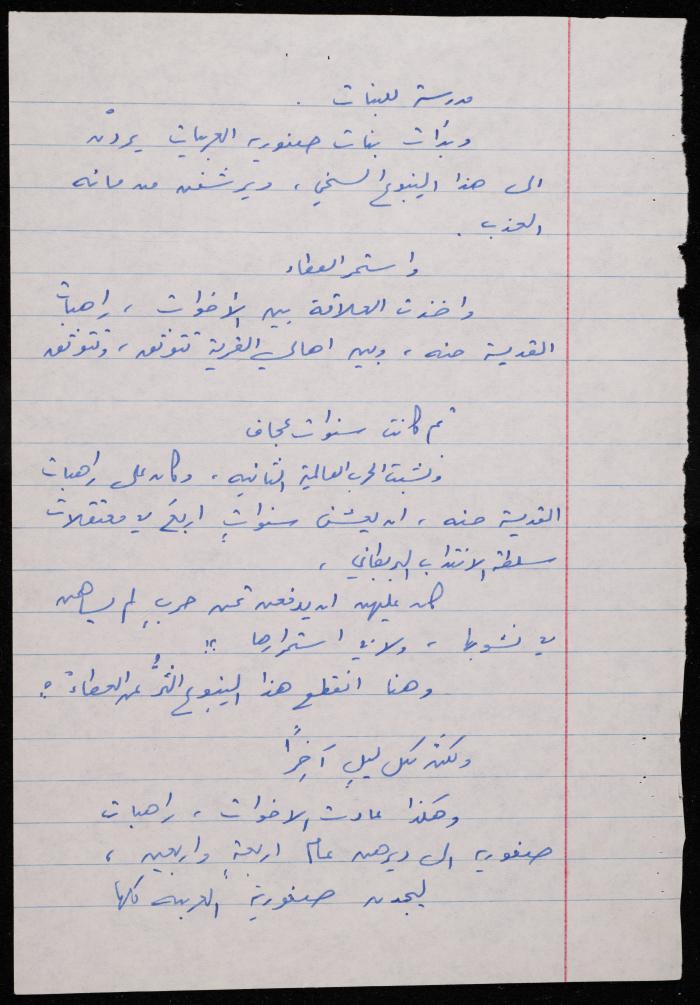 مدرسة للبنات .
وبدأت بنات صفوريه العربيات يردْن
الى هذا الينبوع السخي ، ويرشفن من مائه
العذب .
واستمر العطاء
واخذت العلاقة بين الأخوات ، راهبات
القديسة حنه ، وبين اهالي القرية تتوثق ، وتتوثق
ثم كانت سنوات عجاف
ونشبت الحرب العالمية الثانيه ، وكان على راهبات
القديسة حنه ، ان يعشن سنواتٍ اربعَ في معتقلات
سلطة الانتداب البريطاني ،
كان عليهن ان يدفعن ثمن حربٍ لم يساهمن
في نشوبها ، ولا في استمرارها ؟!
وهنا انقطع هذا الينبوع الثرُّ عن العطاء ؟!
ولكنّ لكل ليلٍ آخِراً
وهكذا عادت الاخوات ، راهبات
صفوريه الى ديرهن عام اربعةٍ واربعين ،
ليجدن صفورية العربيه كلها